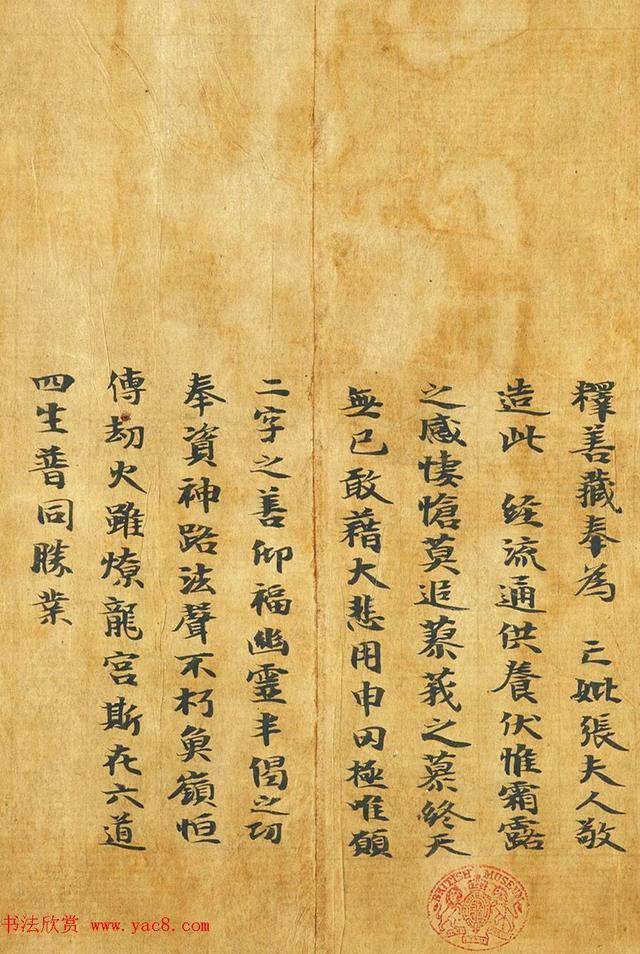 釋善藏奉為　亡妣張夫人敬
造此　經流通供養伏惟霜露
之感悽愴莫追蓼莪之慕終天
無已敢藉大悲用申罔極唯願
二字之善仰福幽靈半偈之功
奉資神路法聲不朽魚嶺恒
傳劫火雖燎龍宮斯在六道
四生普同勝業
BRITISH MUSEUM
书法欣赏 www.yac8.com